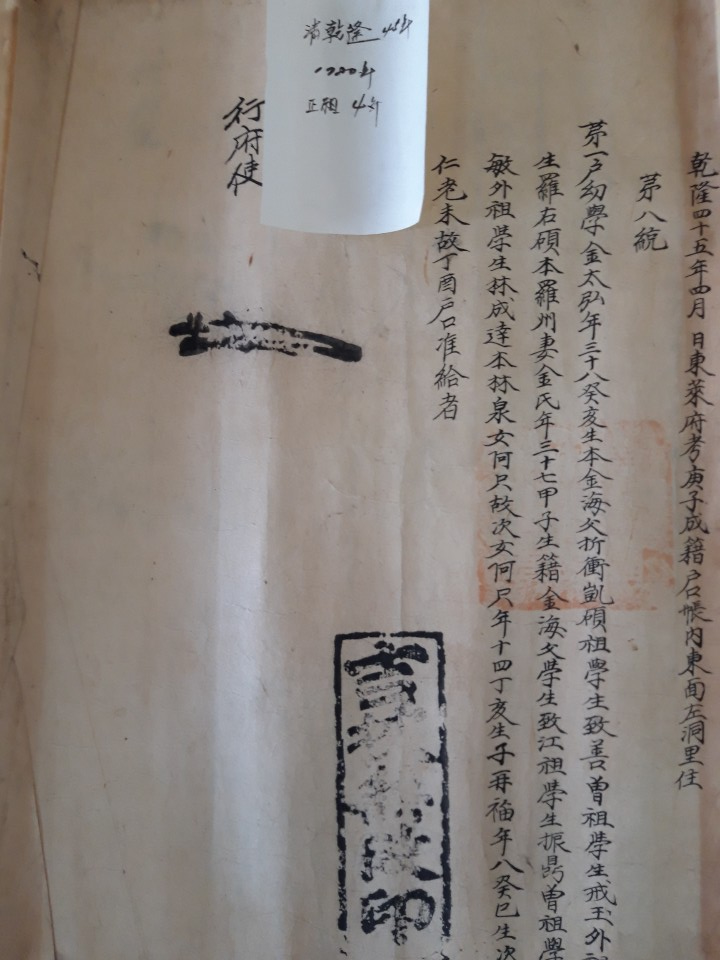 清乾隆 45年
1780年
正祖 4年
乾隆四十五年四月 日東萊府考庚子成籍戶口帳內東面左洞里住
第八統
第一戶幼學金太弘年三十八癸亥生本金海父折衝凱碩祖學生致善曾祖學生戒玉外祖
生羅右碩本羅州妻金氏年三十七甲子生籍金海父學生致江祖學生振昻曾祖學
敏外祖學生林成達本林泉女阿只故次女阿只年十四丁亥生子再福年八癸巳生次
仁老未故丁酉戶口准給者
行府使
印